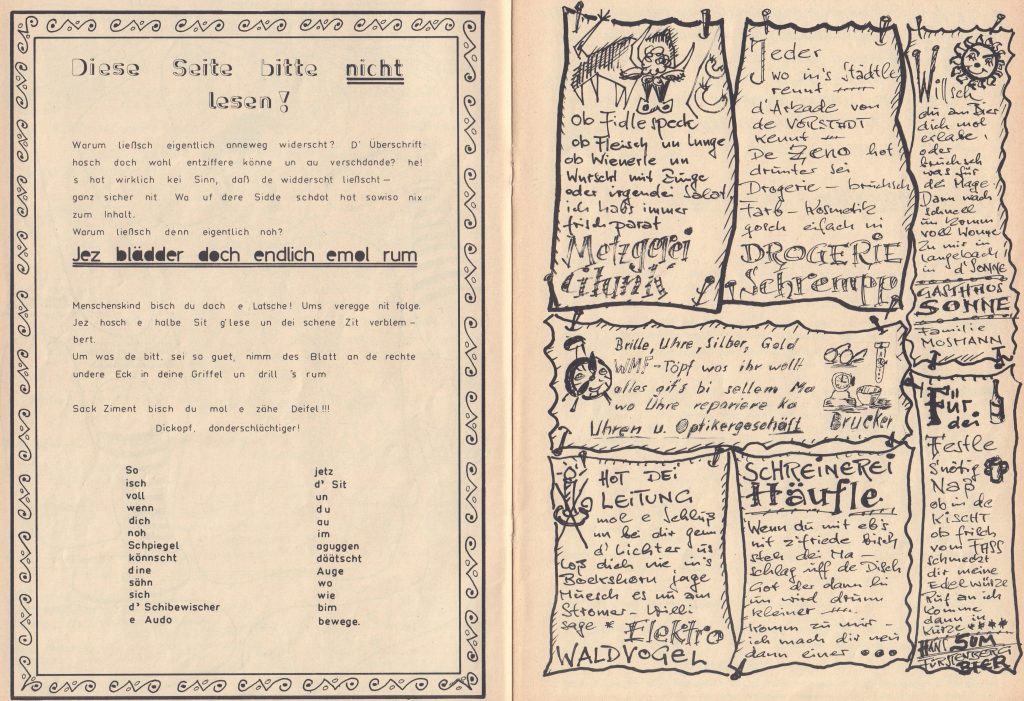 Diese Seite bitte nicht
lesen!
Warum ließsch eigentlich anneweg widerscht? D' Überschrift
hosch doch wohl entziffere könne un au verschdande? he!
s hot wirklich kei Sinn, daß de widderscht ließscht—
ganz sicher nit Wa uf dere Sidde schdot hot sowiso nix
zum Inhalt.
Warum ließsch denn eigentlich noh?
Jez blädder doch endlich emol rum
Menschenskind bisch du doch e Latsche! Ums veregge nit folge.
Jez hosch e halbe Sit g'lese un dei schene Zit verblem–
bert.
Um was de bitt. sei so guet, nimm des Blatt an de rechte
undere Eck in deine Griffel un drill 's rum
Sack Ziment bisch du mol e zähe Deifel!!!
Dickopf, donderschlächtiger!
So
isch
voll
wenn
dich
noh
Schpiegel
könnscht
dine
sähn
sich
d' Schibewischer
e Audo
jetz
d' Sit
un
du
au
im
aguggen
däätscht
Auge
wo
wie
bim
bewege.
ob Fidlespeck
ob Fleisch un Lunge
ob Wienerle un
Wurscht mit Zunge
oder irgendei Salot,
ich habs immer
frisch parat
Metzgerei
Jeder
wo in's Städtle
rennt
d'Arkade von
de VORSTADT
kennt
De Zeno hot
drunter sei
Drogerie – bruchsch
Farb – Kosmetik
gosch eifach in
DROGERIE
Schrempp
Willsch
du am Bier
dich mol
erlabe,
oder
bruchsch
was für
de Mage,
Dann nach
schnell
un komm
voll Wonne
zu mir in
Langebach
in d'SONNE
GASTHUS
SONNE
Familie
MOSMANN
Brille, Uhre, Silber, Gold
WMF-Töpf was ihr wollt
alles git's bi sellem Ma
wo Uhre repariere ka
Uhren u. Optikergeschäft Brucker
HOT DEI
LEITUNG
mol e Schluß
un bei dir gehn
d'Lichter us
Loß dich nie in's
Bockshorn jage
Muesch es nu am
Stromer-Willi
sage * Elektro
WALDVOGEL
SCHREINEREI
Häufle.
Wenn du mit eb's
nit z'friede bisch
steh dei Ma–
schlag uff de Disch
Got der dann hi
un wird drum
kleiner
komm zu mir–
ich mach dir nen
dann einer •••
Für
dei
Festle
s'nötig
Nap
ob in de
KISCHT
ob frisch
vom FASS
schmeckt
dir meine
Edelwürze
Ruf an ich
komme
dann in
Kürze ****
HANS SUM
FÜRSTENBERG
BIER